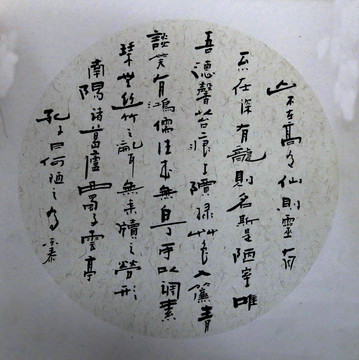 山不在高有仙則靈水
不在深有龍則名斯是陋室唯
吾德馨苔痕上階緑草色入簾青
談笑有鴻儒往來無白丁可以調素
琴無絲竹之亂耳無案牘之勞形
南陽諸葛廬西蜀子雲亭
孔子曰何陋之有